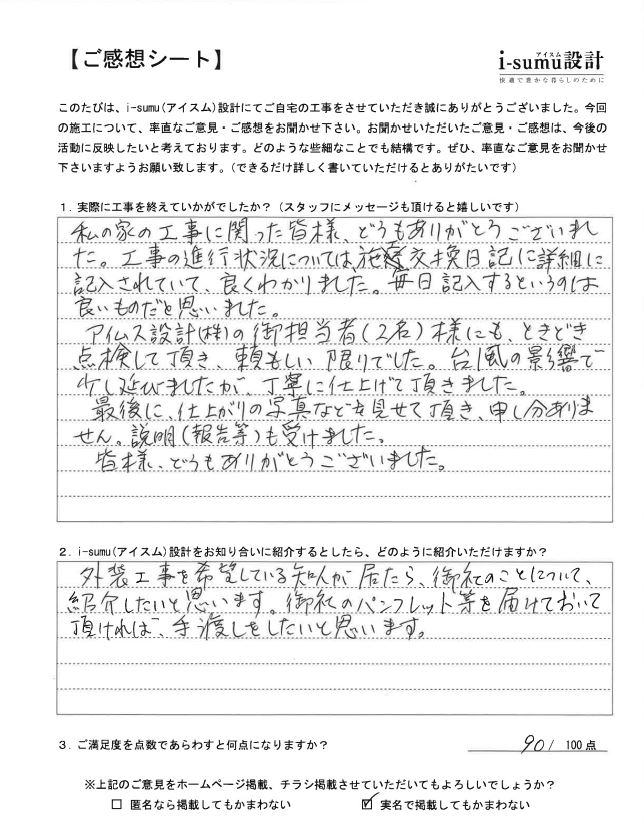 【ご感想シート】
アイスム
i-sumu設計
快適で豊かな暮らしのために
このたびは、i-sumu(アイスム)設計にてご自宅の工事をさせていただき誠にありがとうございました。今回
の施工について、率直なご意見・ご感想をお聞かせ下さい。お聞かせいただいたご意見・ご感想は、今後の
活動に反映したいと考えております。どのような些細なことでも結構です。ぜひ、率直なご意見をお聞かせ
下さいますようお願い致します。(できるだけ詳しく書いていただけるとありがたいです)
1. 実際に工事を終えていかがでしたか?(スタッフにメッセージも頂けると嬉しいです)
私の家の工事に関った皆様、どうもありがとうございまし
た。工事の進行状況については、施交換日記に詳細に
記入されていて、良くわかりました。毎日記入するというのは
良いものだと思いました。
アイムス設計(株)の御担当者(2名)様にも、ときどき
点検して頂き、頼もしい限りでした。台風の影響で
少し延びましたが、丁寧に仕上げて頂きました。
最後に、仕上がりの写真などを見せて頂き、申し分ありま
せん。説明(報告等)も受けました。
皆様、どうもありがとうございました。
2. i-sumu(アイスム)設計をお知り合いに紹介するとしたら、どのように紹介いただけますか?
外装工事を希望している知人が居たら、御社のことについて、
紹介したいと思います。御社のパンフレット等を届けておいて
頂ければ、手渡しをしたいと思います。
3. ご満足度を点数であらわすと何点になりますか?
90/ 100点
※上記のご意見をホームページ掲載、チラシ掲載させていただいてもよろしいでしょうか?
□ 匿名なら掲載してもかまわない
☑ 実名で掲載してもかまわない